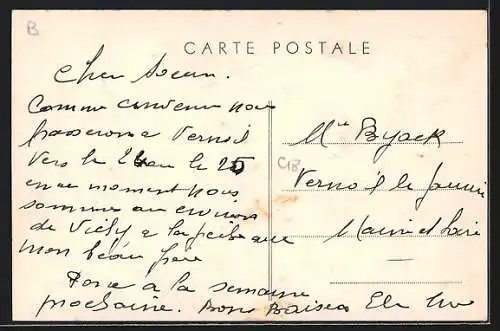 B
CARTE POSTALE
Cher Soeur.
Comme convenue nous
passerons a Vernoil
vers le 24 ou le 25
en ce moment nous
somme au environ
de Vichy a la peche avec
mon beau frère
Donc a la semaine
prochaine. Bons Baisers
Mlle
C18
Vernoil le
Maine et Loire